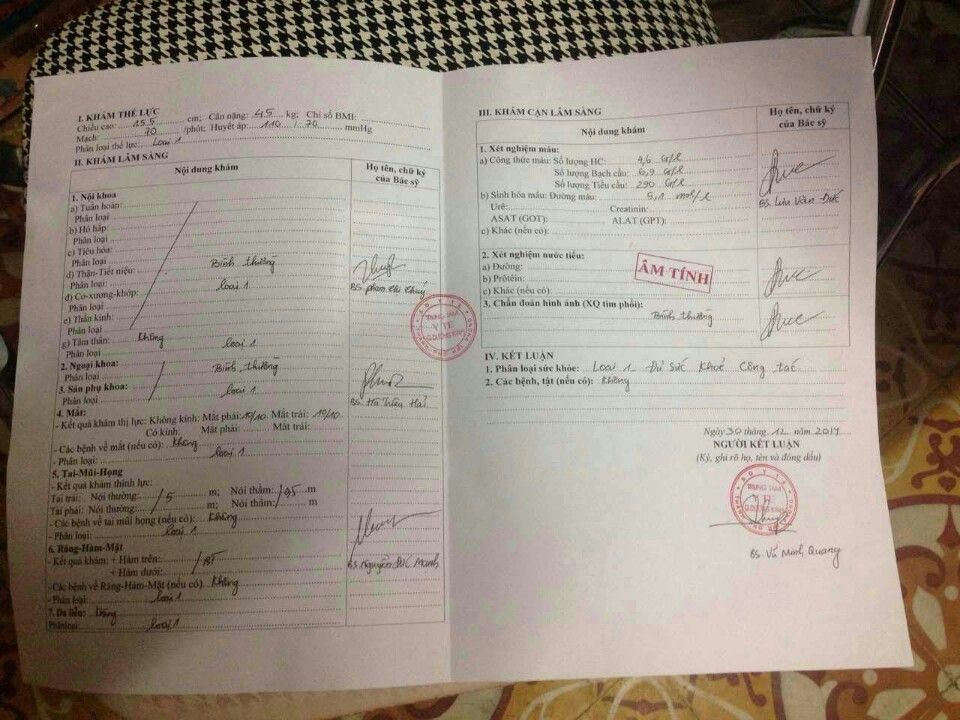 I. KHÁM THỂ LỰC
Chiều cao: 155 cm; Cân nặng: 45 kg; Chỉ số BMI:
Mạch: 70 /phút; Huyết áp: 110 / 70 mmHg
Phân loại thể lực: Loại 1
II. KHÁM LÂM SÀNG
Nội dung khám
Họ tên, chữ ký của Bác sỹ
1. Nội khoa
a) Tuần hoàn:
Phân loại
b) Hô hấp:
Phân loại
c) Tiêu hóa:
Phân loại
d) Thận-Tiết niệu: Bình thường
Phân loại loại 1
BS. Phạm Thị Thuý
đ) Cơ-xương-khớp:
Phân loại
e) Thần kinh:
Phân loại
g) Tâm thần: Không
Phân loại loại 1
2. Ngoại khoa: Bình thường
Phân loại
3. Sản phụ khoa: loại 1
Phân loại
BS. Hà Hải
4. Mắt:
- Kết quả khám thị lực: Không kính: Mắt phải: 10/10 Mắt trái: 10/10
Có kính: Mắt phải: Mắt trái:
- Các bệnh về mắt (nếu có): Không
- Phân loại: loại 1
5. Tai-Mũi-Họng
- Kết quả khám thính lực:
Tai trái: Nói thường: 5 m; Nói thầm: 0,5 m
Tai phải: Nói thường: m; Nói thầm: m
- Các bệnh về tai mũi họng (nếu có): Không
- Phân loại: loại 1
6. Răng-Hàm-Mặt
- Kết quả khám: + Hàm trên: BT
+ Hàm dưới:
BS. Nguyễn Đức Mạnh
- Các bệnh về Răng-Hàm-Mặt (nếu có) Không
- Phân loại: loại 1
7. Da liễu:
Phân loại: loại 1
TRUNG TÂM
Y TẾ
Q.DƯƠNG KINH
III. KHÁM CẬN LÂM SÀNG
Nội dung khám
Họ tên, chữ ký của Bác sỹ
1. Xét nghiệm máu:
a) Công thức máu: Số lượng HC: 4,6 G/l
Số lượng Bạch cầu: 6,9 G/l
Số lượng Tiểu cầu: 290 G/l
b) Sinh hóa máu: Đường máu: 5,1 mol/l
BS. Lưu Văn Đức
Urê: Creatinin:
ASAT (GOT): ALAT (GPT):
c) Khác (nếu có):
2. Xét nghiệm nước tiểu:
a) Đường:
b) Prôtêin:
ÂM TÍNH
c) Khác (nếu có):
3. Chẩn đoán hình ảnh (XQ tim phổi):
Bình thường
IV. KẾT LUẬN
1. Phân loại sức khỏe: Loại 1 Đủ Sức Khoẻ Công tác
2. Các bệnh, tật (nếu có): Không
Ngày 30 tháng 12 năm 2019
NGƯỜI KẾT LUẬN
(Ký, ghi rõ họ, tên và đóng dấu)
TRUNG TÂM
Y TẾ
Q.DƯƠNG KINH
BS. Vũ Minh Quang